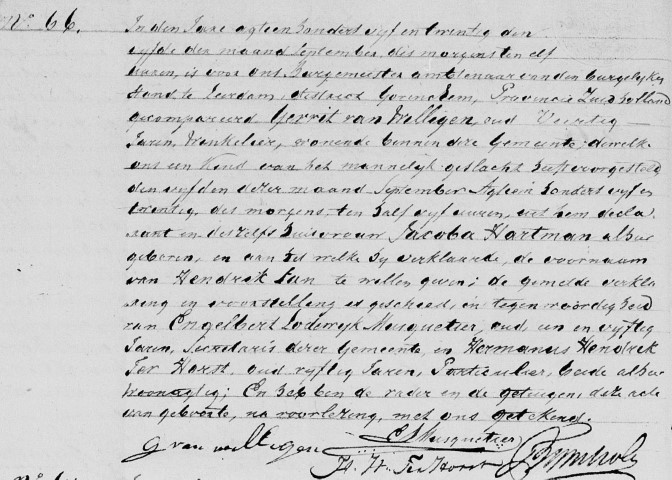 N° 66. In den Jare agtien honderd vyf en twintig den
vyfde der maand September, des morgens ten elf
uuren, is voor ons Burgemeester ambtenaar van den burgelyken
Stand te Leerdam, district Gorinchem, Provincie Zuid Holland
gecompareerd Gerrit van Willegen, oud Veertig
Jaren, Winkelier, wonende binnen deze Gemeente, dewelke
ons een Kind van het mannelijk geslacht heeft voorgesteld
den vyfden dezer maand September Agtien honderd vyf en
twintig, des morgens, ten half vyf uuren, uit hem decla
rant en deszelfs huisvrouw Jacoba Hartman alhier
geboren, en aan het welke hy verklaarde, de voornaam
van Hendrik Jan te willen geven; de gemelde verkla
ring en voorstelling is geschied, in tegenwoordigheid
van Engelbert Lodewyk Musquetier, oud een en vyftig
Jaren, Secretaris dezer Gemeente, en Hermanus Hendrik
Ter Horst, oud vyftig Jaren, Particulier, beide alhier
woonagtig; En hebben de vader en de getuigen, deze acte
van geboorte, na voorlezing, met ons getekend.
G van Willegen EL Musquetier
H. H. Ter Horst
N°